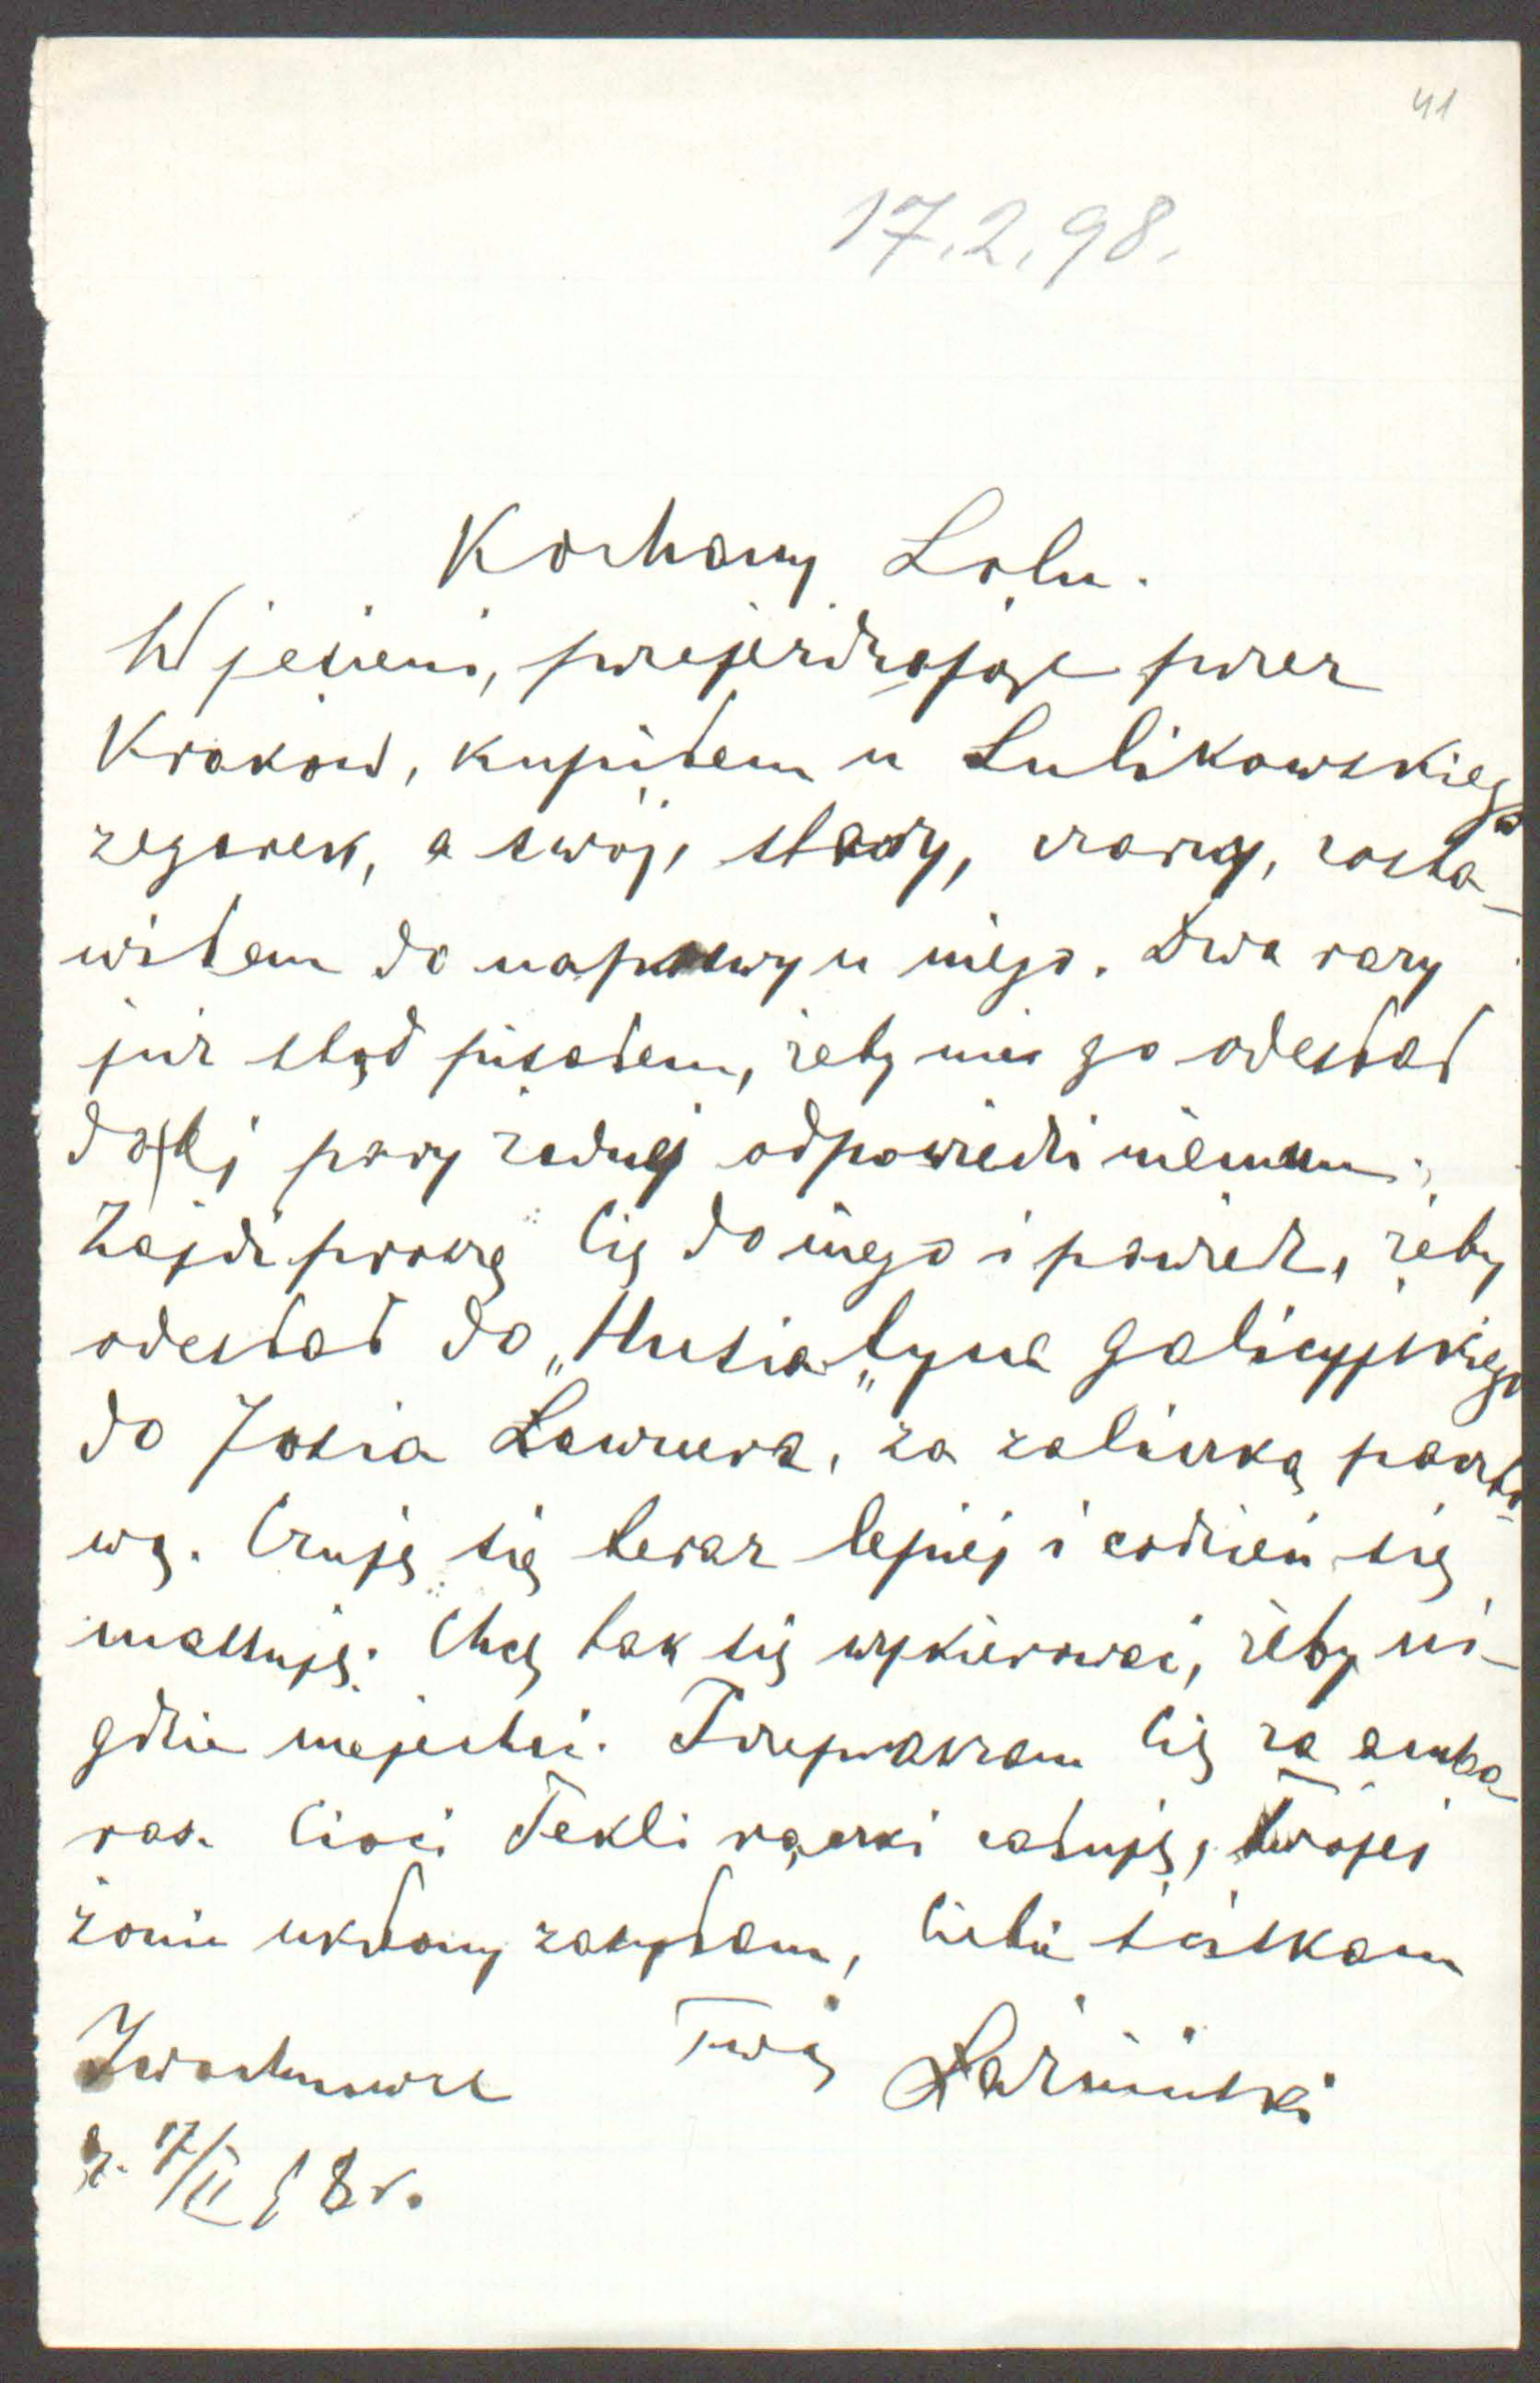 41
17.2.98.
Kochany Lolu.
W jesieni, przejeżdżając przez
Kraków, kupiłem u Sulikowskiego
zegarek, a swój, stary, czarny, zosta-
wiłem do naprawy u niego. Dwa razy
już stąd pisałem, żeby mi go odesłał
do tej pory żadnej odpowiedzi niemam;
Zajdź proszę Cię do niego i powiedz, żeby
odesłał do „Husiatyna galicyjskiego
do Josia Lawnera, za zaliczką poczto-
wą. Czuję się teraz lepiej i codzień się
massuję. Chcę tak się wykierować, żeby ni-
gdzie niejechać. Przepraszam Cię za amba-
ras. Cioci Tekli rączki całuję, twojej
żonie ukłony zasyłam, Ciebie ściskam
Twój Łoziński
Iwachnowce
d. 17/II 98 r.